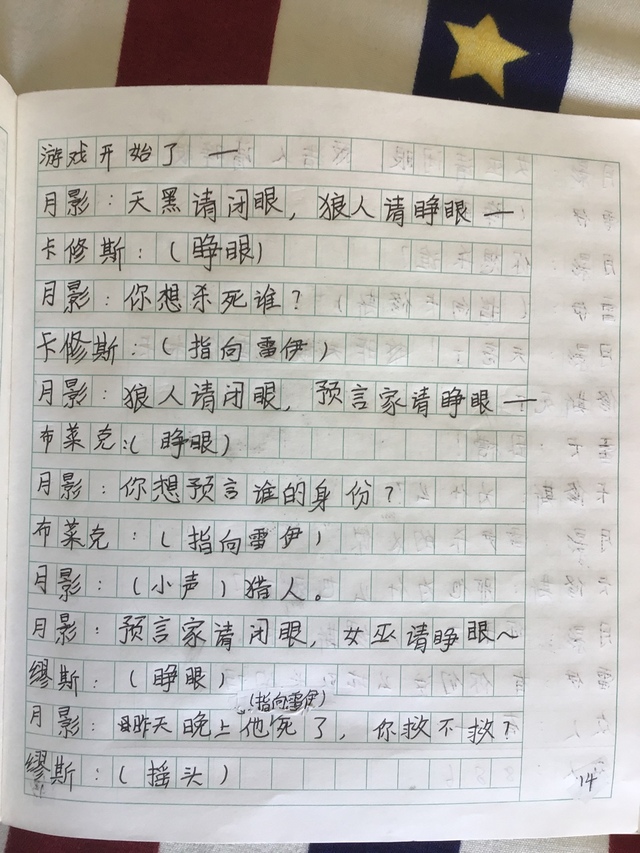 游戏开始了 —
月影：天黑请闭眼，狼人请睁眼 —
卡修斯：（睁眼）
月影：你想杀死谁？
卡修斯：（指向雷伊）
月影：狼人请闭眼，预言家请睁眼 —
布莱克：（睁眼）
月影：你想预言谁的身份？
布莱克：（指向雷伊）
月影：（小声）猎人。
月影：预言家请闭眼，女巫请睁眼～
缪斯：（睁眼）
（指向雷伊）
月影：昨天晚上他死了，你救不救？
缪斯：（摇头）
14